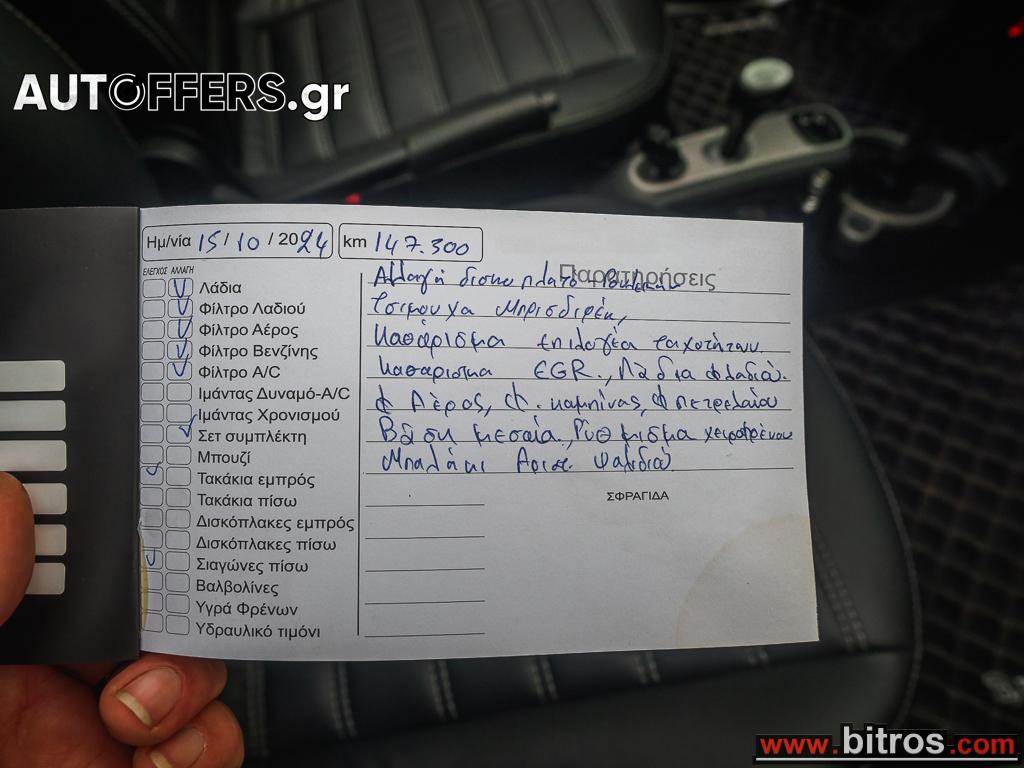 AUTOFFERS.gr
Ημ/νία 15/10/2024 km 147.300
ΕΛΕΓΧΟΣ ΑΛΛΑΓΗ
Παρατηρήσεις
Λάδια
Φίλτρο Λαδιού
Φίλτρο Αέρος
Φίλτρο Βενζίνης
Φίλτρο A/C
Ιμάντας Δυναμό-A/C
Ιμάντας Χρονισμού
Σετ συμπλέκτη
Μπουζί
Τακάκια εμπρός
Τακάκια πίσω
Δισκόπλακες εμπρός
Δισκόπλακες πίσω
Σιαγώνες πίσω
Βαλβολίνες
Υγρά Φρένων
Υδραυλικό τιμόνι
Αλλαγή δισκο πλατο
Τσιμουχα
Καθάρισμα επιλογέα ταχυτήτων
Καθαρισμα EGR., Λάδια Φ λαδιού.
Φ Αέρος, Φ. καμπίνας, Φ πετρελαίου
Βάση μεσαία, Ρύθμισμα χειροφρένου
Μπαλάκι Αρισ. Ψαλιδιού
ΣΦΡΑΓΙΔΑ
www.bitros.com